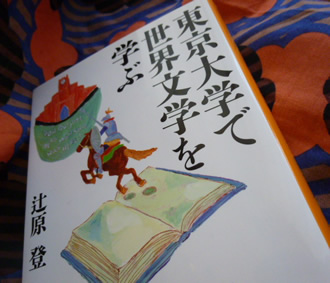 東京大学で
世界文学を
学ぶ
辻原 登